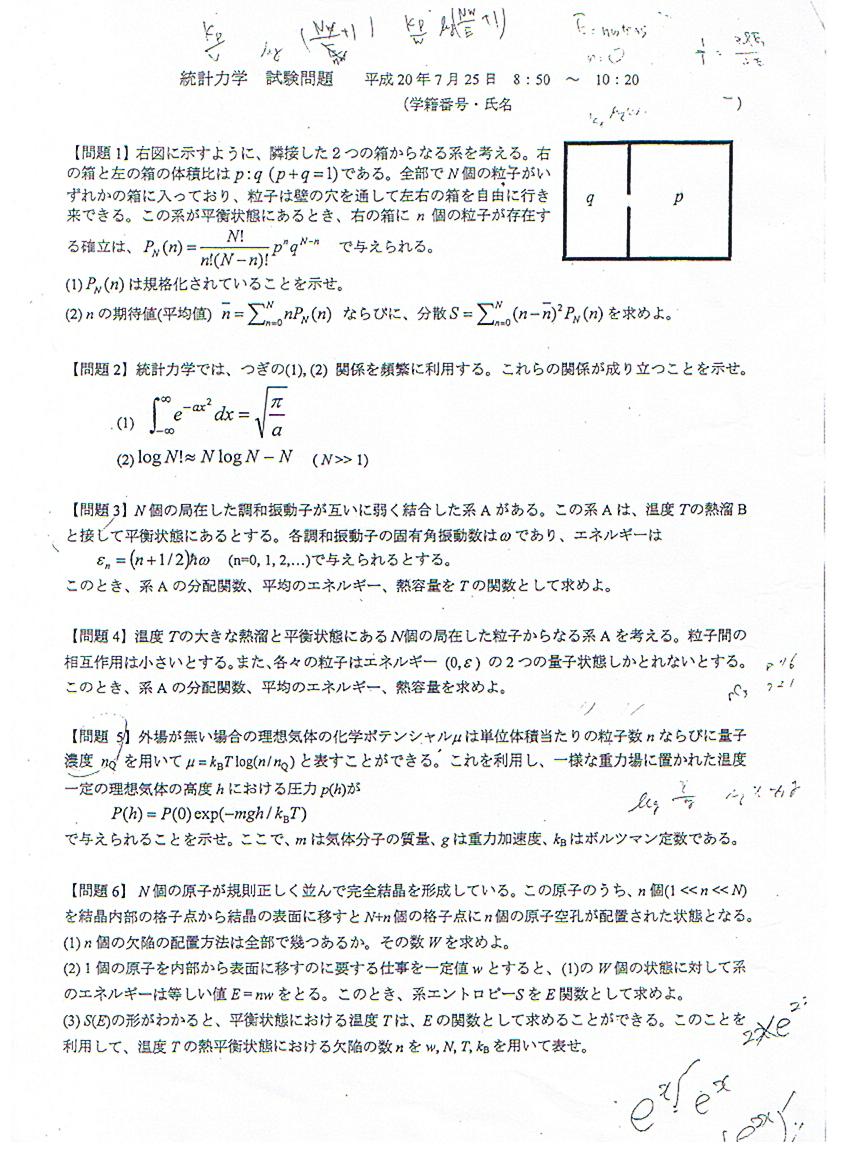 統計力学　試験問題　　平成20年7月25日　8:50　～　10:20
(学籍番号・氏名　　　　　　　　　　　　)
【問題 1】右図に示すように、隣接した2つの箱からなる系を考える。右
の箱と左の箱の体積比は p:q (p+q=1)である。全部で N 個の粒子がい
ずれかの箱に入っており、粒子は壁の穴を通して左右の箱を自由に行き
来できる。この系が平衡状態にあるとき、右の箱に n 個の粒子が存在す
る確立は、P_N(n) = \frac{N!}{n!(N-n)!} p^n q^{N-n} で与えられる。
(1) P_N(n) は規格化されていることを示せ。
(2) n の期待値(平均値) \bar{n} = \sum_{n=0}^{N} nP_N(n) ならびに、分散 S = \sum_{n=0}^{N} (n-\bar{n})^2 P_N(n) を求めよ。
q
p
【問題 2】統計力学では、つぎの(1), (2) 関係を頻繁に利用する。これらの関係が成り立つことを示せ。
(1) \int_{-\infty}^{\infty} e^{-ax^2} dx = \sqrt{\frac{\pi}{a}}
(2) log N! ≈ N log N − N　(N>> 1)
【問題 3】N 個の局在した調和振動子が互いに弱く結合した系 A がある。この系 A は、温度 T の熱溜 B
と接して平衡状態にあるとする。各調和振動子の固有角振動数は ω であり、エネルギーは
ε_n = (n+1/2)ħω　(n=0, 1, 2,…)で与えられるとする。
このとき、系 A の分配関数、平均のエネルギー、熱容量を T の関数として求めよ。
【問題 4】温度 T の大きな熱溜と平衡状態にある N 個の局在した粒子からなる系 A を考える。粒子間の
相互作用は小さいとする。また、各々の粒子はエネルギー (0, ε) の2つの量子状態しかとれないとする。
このとき、系 A の分配関数、平均のエネルギー、熱容量を求めよ。
【問題 5】外場が無い場合の理想気体の化学ポテンシャル μ は単位体積当たりの粒子数 n ならびに量子
濃度 n_Q を用いて μ = k_B T log(n/n_Q) と表すことができる。これを利用し、一様な重力場に置かれた温度
一定の理想気体の高度 h における圧力 p(h)が
P(h) = P(0) exp(−mgh/k_B T)
で与えられることを示せ。ここで、m は気体分子の質量、g は重力加速度、k_B はボルツマン定数である。
【問題 6】 N 個の原子が規則正しく並んで完全結晶を形成している。この原子のうち、n 個(1 << n << N)
を結晶内部の格子点から結晶の表面に移すと N+n 個の格子点に n 個の原子空孔が配置された状態となる。
(1) n 個の欠陥の配置方法は全部で幾つあるか。その数 W を求めよ。
(2) 1 個の原子を内部から表面に移すのに要する仕事を一定値 w とすると、(1)の W 個の状態に対して系
のエネルギーは等しい値 E = nw をとる。このとき、系エントロピー S を E 関数として求めよ。
(3) S(E)の形がわかると、平衡状態における温度 T は、E の関数として求めることができる。このことを
利用して、温度 T の熱平衡状態における欠陥の数 n を w, N, T, k_B を用いて表せ。